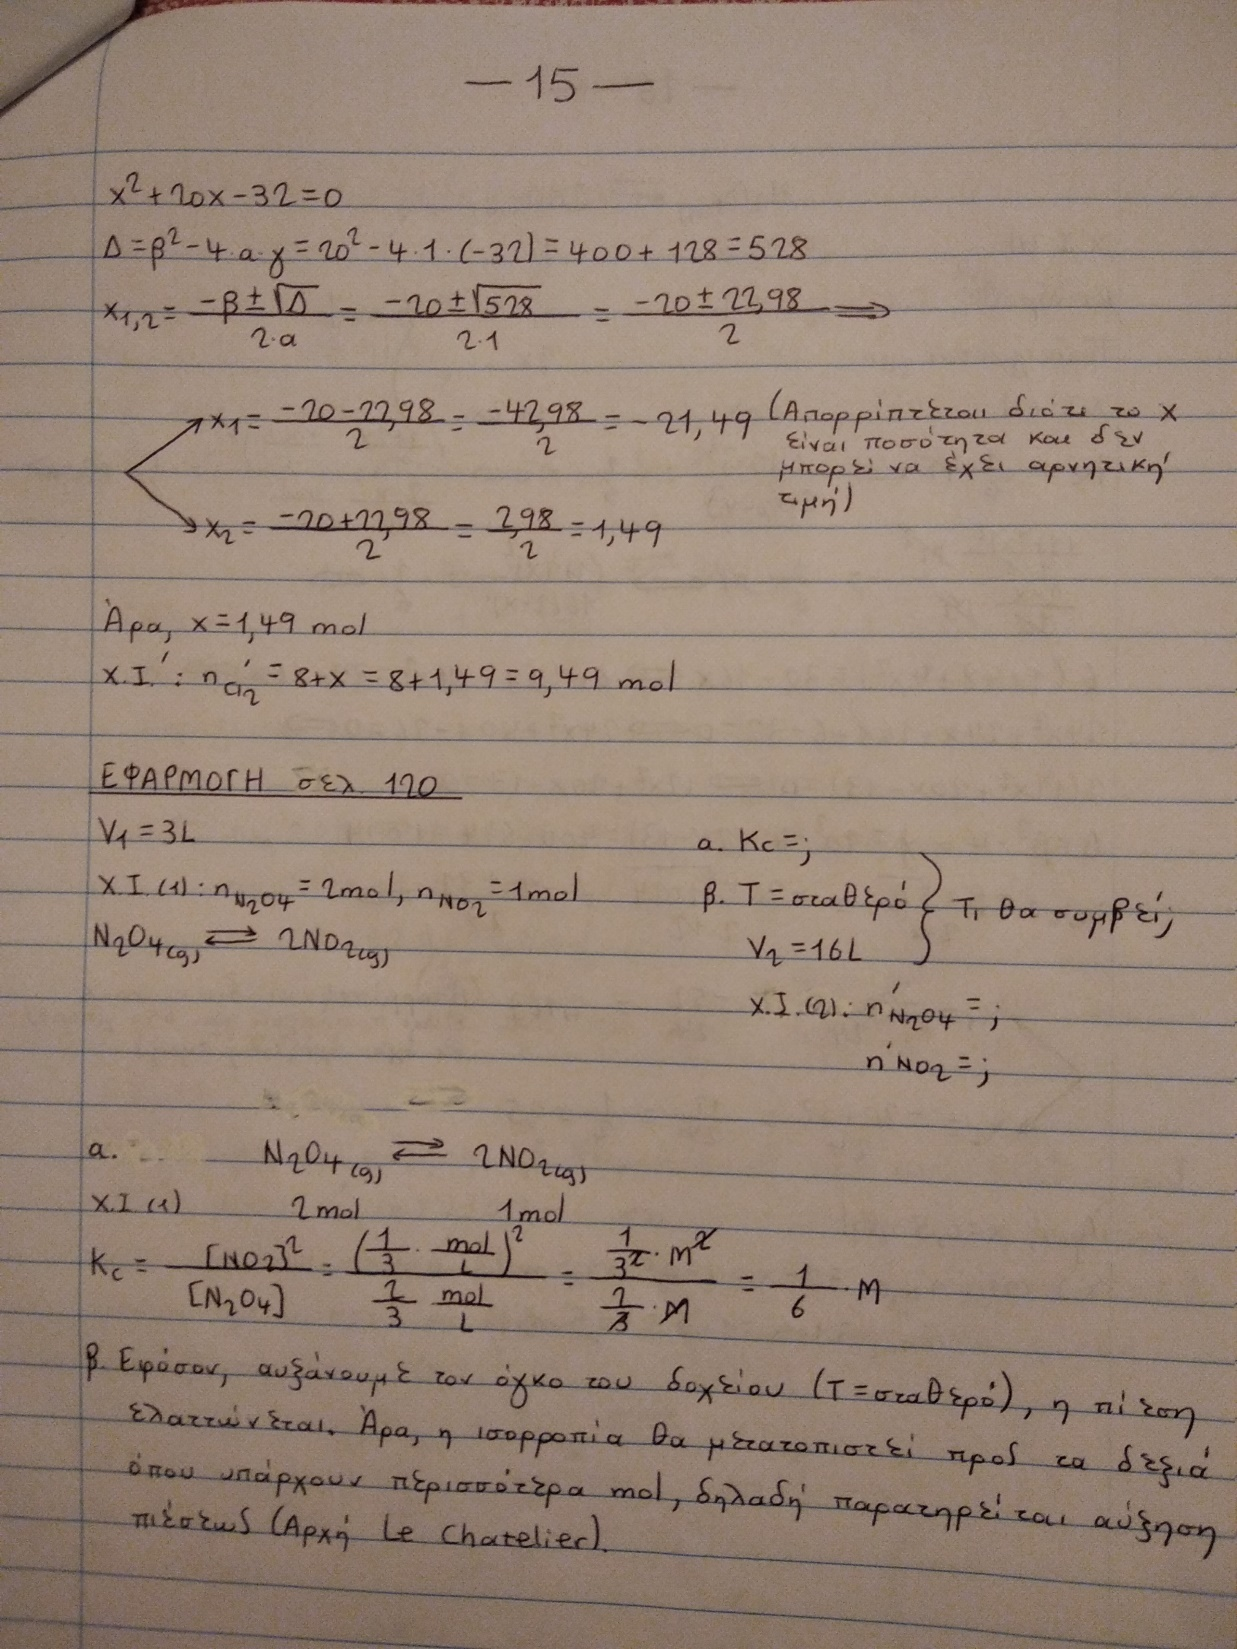 — 15 —
x²+20x-32=0
Δ=β²-4·α·γ=20²-4·1·(-32)=400+128=528
x₁,₂= (-β±√Δ)/(2·α) = (-20±√528)/(2·1) = (-20±22,98)/2 ⟹
x₁= (-20-22,98)/2 = (-42,98)/2 = -21,49 (Απορρίπτεται διότι το x
είναι ποσότητα και δεν
μπορεί να έχει αρνητική
τιμή)
x₂= (-20+22,98)/2 = 2,98/2 = 1,49
Άρα, x=1,49 mol
Χ.Ι.': n'Cl₂ = 8+x = 8+1,49=9,49 mol
ΕΦΑΡΜΟΓΗ σελ 120
V₁=3L
Χ.Ι.(1): nN₂O₄=2mol, nNO₂=1mol
N₂O₄(g) ⇄ 2NO₂(g)
α. Kc=;
β. Τ=σταθερό } Τι θα συμβεί;
V₂=16L
Χ.Ι.(2): n'N₂O₄=;
n'NO₂=;
α. N₂O₄(g) ⇄ 2NO₂(g)
Χ.Ι (1) 2mol 1mol
Kc = [NO₂]²/[N₂O₄] = (1/3 · mol/L)²/(2/3 mol/L) = (1/3² · M²)/(2/3 · M) = 1/6 · M
β. Εφόσον, αυξάνουμε τον όγκο του δοχείου (Τ=σταθερό), η πίεση
ελαττώνεται. Άρα, η ισορροπία θα μετατοπιστεί προς τα δεξιά
όπου υπάρχουν περισσότερα mol, δηλαδή παρατηρείται αύξηση
πιέσεως (Αρχή Le Chatelier).